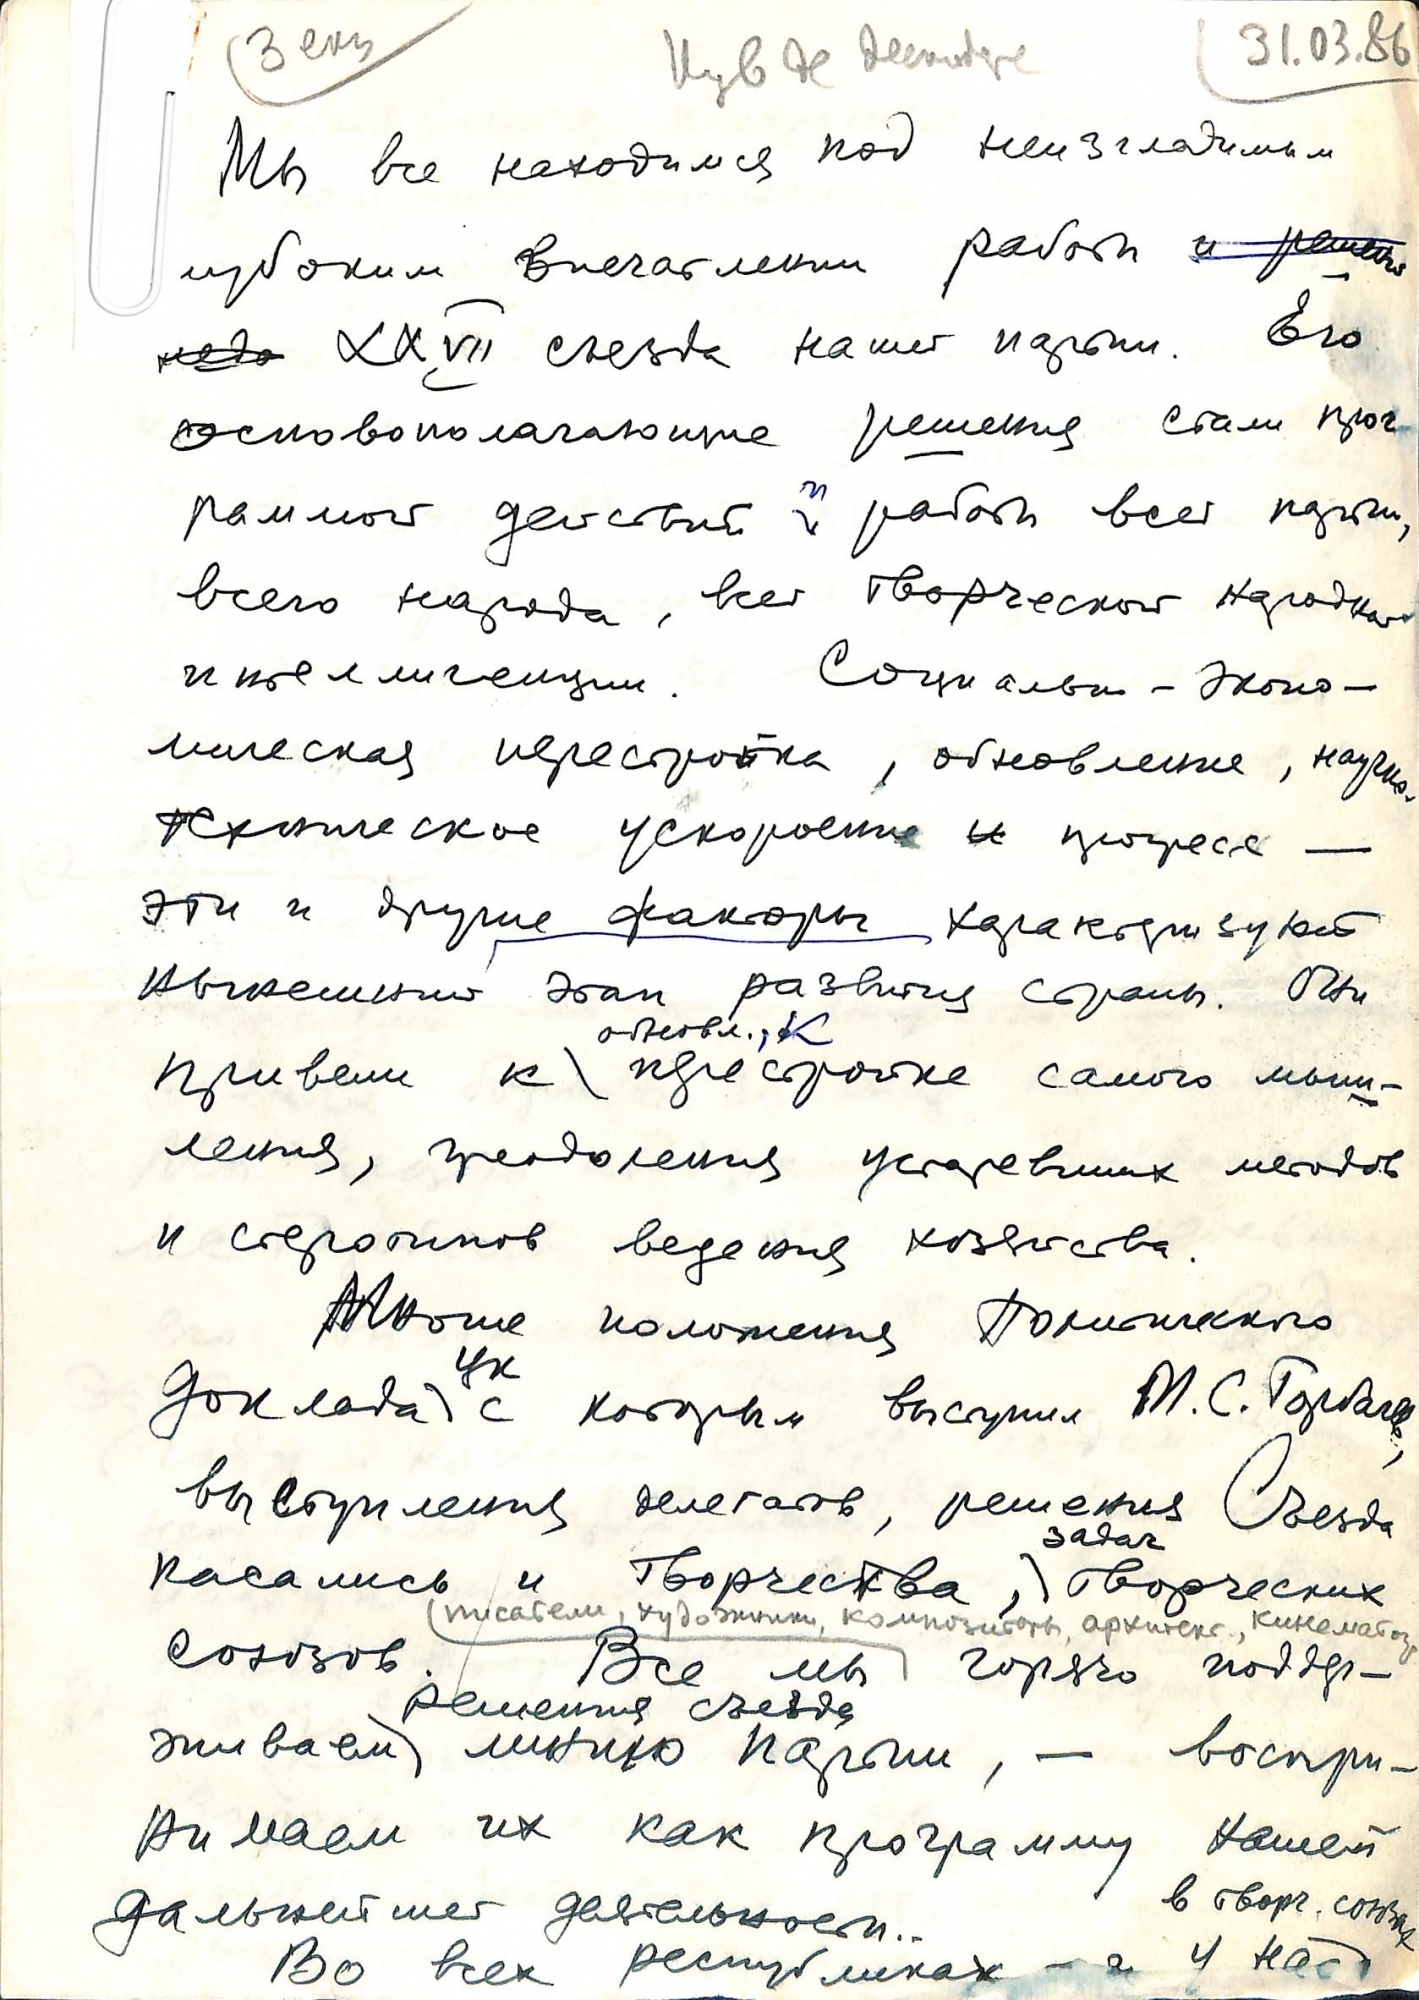 3 экз
31.03.86
Мы все находимся под неизгладимым
глубоким впечатлением работы и решений
XXVII съезда нашей партии. Его
основополагающие решения стали прог-
раммой действий и работы всей партии,
всего народа, всей творческой народной
интеллигенции. Социально-эконо-
мическая перестройка, обновление, научно-
техническое ускорение и прогресс —
эти и другие факторы характеризуют
нынешний этап развития страны. Они
обновл., к
привели к перестройке самого мыш-
ления, преодоления устаревших методов
и стереотипов ведения хозяйства.
Многие положения Политического
ЦК
доклада с которым выступил М.С. Горбачев,
выступления делегатов, решения Съезда
задач
касались и творчества, творческих
(писатели, художники, композиторы, архитект., кинематогр.
союзов. Все мы горячо поддер-
решения съезда
живаем линию партии, — воспри-
нимаем их как программу нашей
дальнейшей деятельности..
в творч. союзах
Во всех республиках – и у нас